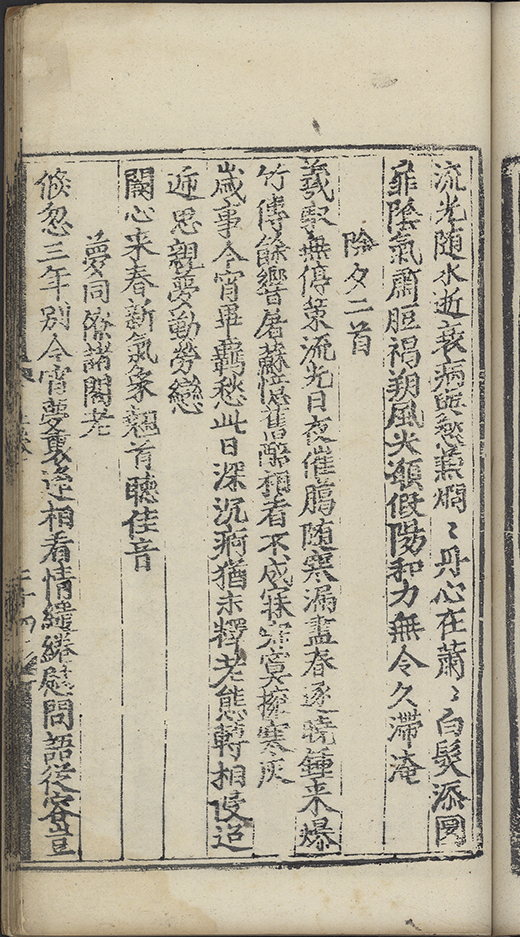 流光随水逝衰病與愁兼烱〻丹心在蕭〻白髮添圜
扉陰氣肅短褐朔風尖願假陽和力無令久滞淹
除夕二首
羲馭無停策流光日夜催臘随寒漏盡春逐曉鍾来爆
竹傳餘響屠蘇憶舊醅相看不成寐寂寞擁寒灰
歲事今宵畢羈愁此日深沉痾猶未釋老態轉相侵迢
遞思親夢勤勞戀
闕心来春新氣象翹首聴佳音
夢同僚諸閣老
倏忽三年别今宵夢裏逢相看情繾綣慰問語從容豈